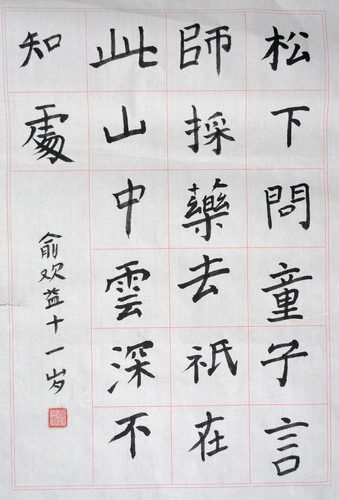 松下問童子言
師採藥去祇在
此山中雲深不
知處
俞欢益十一岁